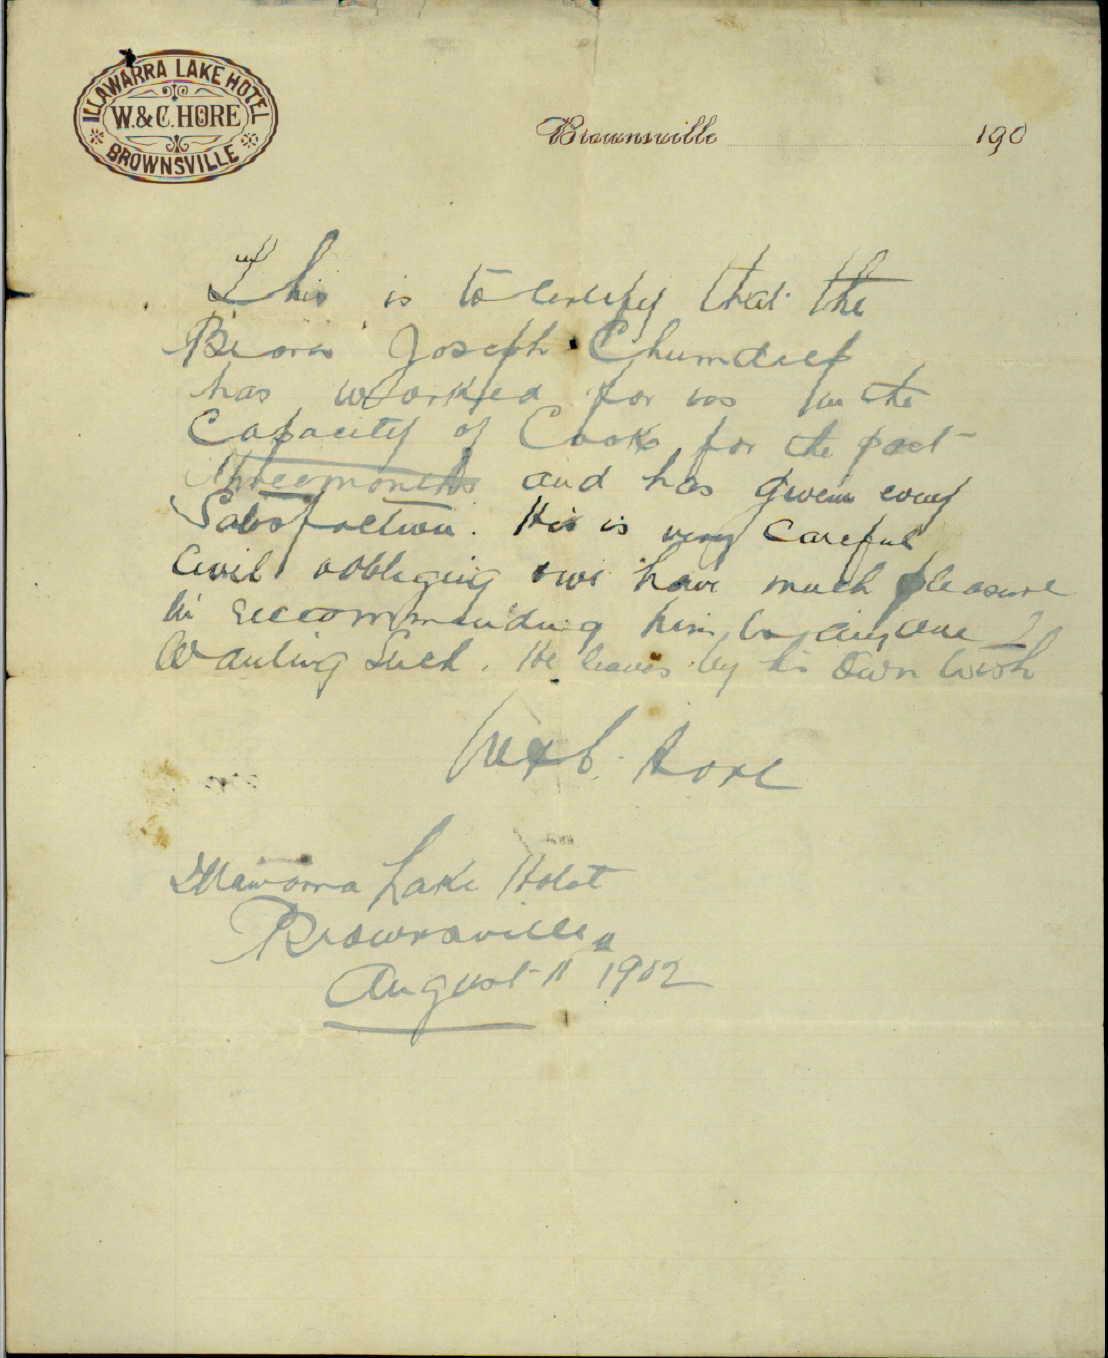 ILLAWARRA LAKE HOTEL
W. & C. HORE
BROWNSVILLE
Brownsville 190
This is to certify that the
Joseph Chumdief
has worked for us in the
Capacity of Cook for the past
three months and has given every
Satisfaction. He is very careful
Civil obbliging & we have much pleasure
in reccommending him to anyone
Wanting Such. He leaves by his own wish
W & C. Hore
Illawarra Lake Hotel
Brownsville
August 11 1902